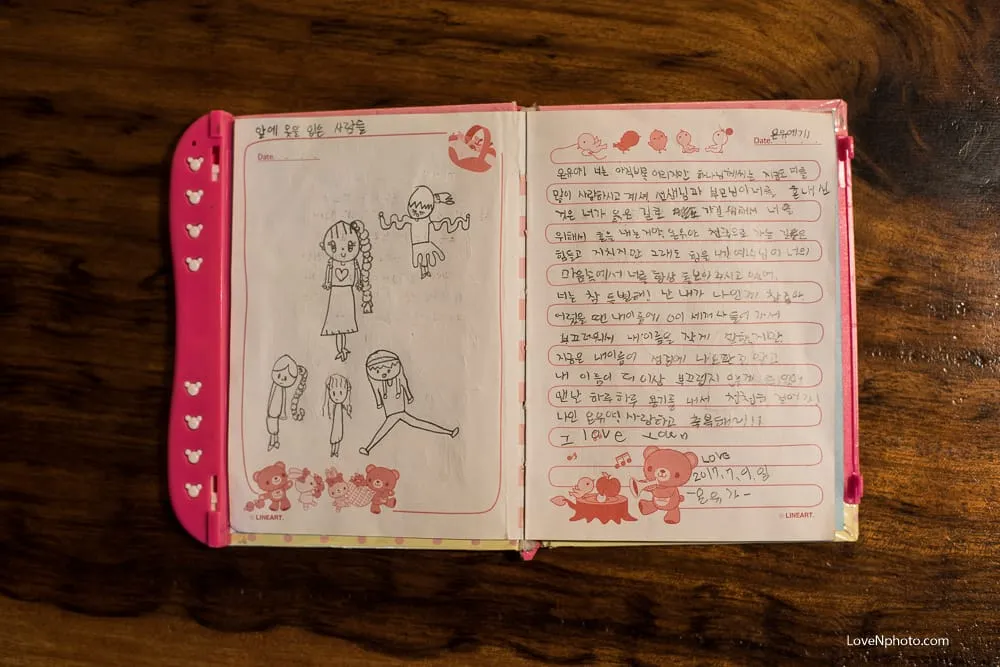 앞에 옷을 입은 사람들
Date. . . .
© LINEART.
Date. 온유에게!!
온유야! 너는 아직 어리지만 하나님께서는 지금도 너를
많이 사랑하시고 계셔 선생님과 부모님이 너를 혼내신
것은 네가 옳은 길로 가길 위해서 너를
위해서 혼을 내는거야. 온유야 천국으로 가는 길은
힘들고 지치지만 그래도 힘을 내! 예수님이 너의
마음속에서 너를 항상 돌보아 주시고 있어.
너는 참 특별해! 난 내가 나인게 참 좋아
어렸을 땐 내 이름에 이 세개나 들어가서
부끄러워서 내 이름을 작게 말했지만
지금은 내 이름이 성경에 나오고
내 이름이 더 이상 부끄럽지 않게
맨날 하루하루 용기를 내서
나인 온유야 사랑하고 축복해!!!
I love you
LOVE
2017.7.9.일
-온유가-
© LINEART.
LoveNphoto.com